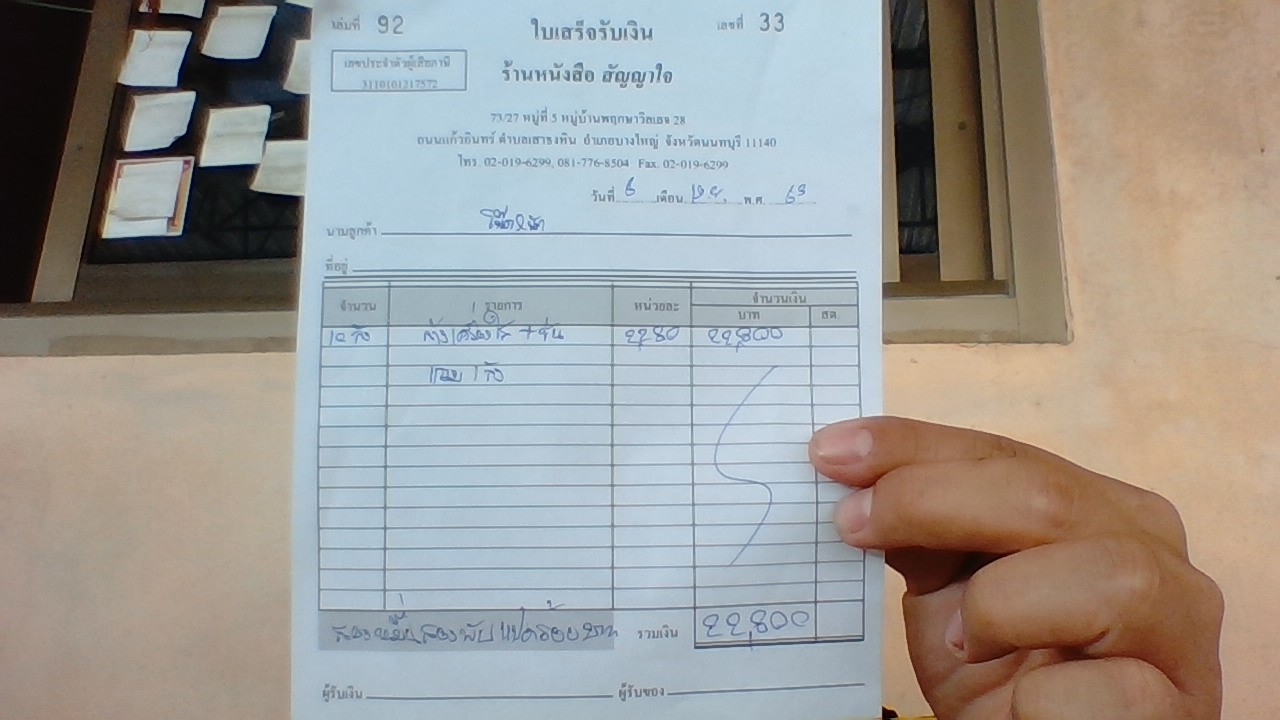 เล่มที่ 92 ใบเสร็จรับเงิน เลขที่ 33
เลขประจำตัวผู้เสียภาษี
3110101317572
ร้านหนังสือ สัญญาใจ
73/27 หมู่ที่ 5 หมู่บ้านพฤกษาวิลเลจ 28
ถนนแก้วอินทร์ ตำบลเสาธงหิน อำเภอบางใหญ่ จังหวัดนนทบุรี 11140
โทร. 02-019-6299, 081-776-8504 Fax. 02-019-6299
วันที่ 6 เดือน พ.ศ. 63
นามลูกค้า
ที่อยู่
จำนวน รายการ หน่วยละ จำนวนเงิน
บาท สต.
22,800
แถม 1
สองหมื่นสองพันแปดร้อยบาท รวมเงิน 22,800
ผู้รับเงิน ผู้รับของ